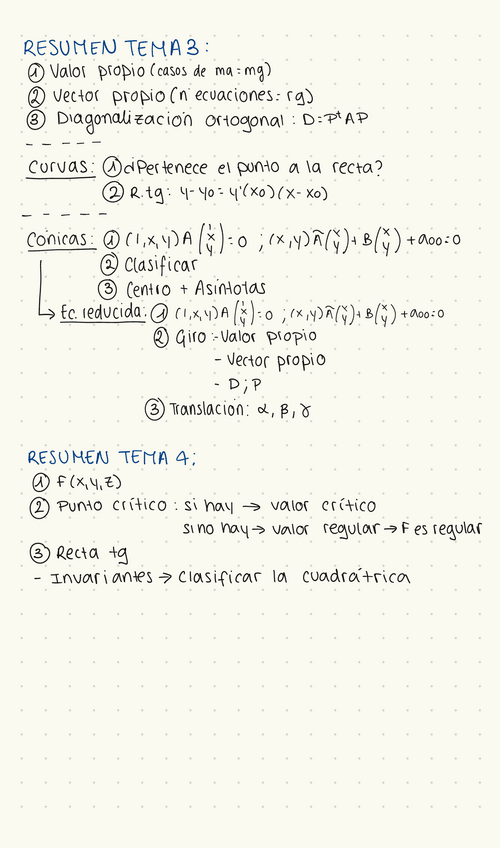 RESUMEN TEMA 3:
① Valor propio (casos de ma=mg)
② Vector propio (nº ecuaciones = rg)
③ Diagonalización ortogonal: D=PᵗAP
- - - - -
Curvas: ① ¿Pertenece el punto a la recta?
② R.tg: y-y0 = y'(x0)(x-x0)
- - - - -
Cónicas: ① (1,x,y)A(1 x y)=0 ; (x,y)Ã(x y)+B(x y)+a00=0
② Clasificar
③ Centro + Asíntotas
↳ Ec. reducida: ① (1,x,y)A(1 x y)=0 ; (x,y)Ã(x y)+B(x y)+a00=0
② Giro: -Valor propio
- Vector propio
- D ; P
③ Translación: α, β, γ
RESUMEN TEMA 4:
① F(x,y,z)
② Punto crítico: si hay → valor crítico
si no hay → valor regular → F es regular
③ Recta tg
- Invariantes → clasificar la cuadrátrica